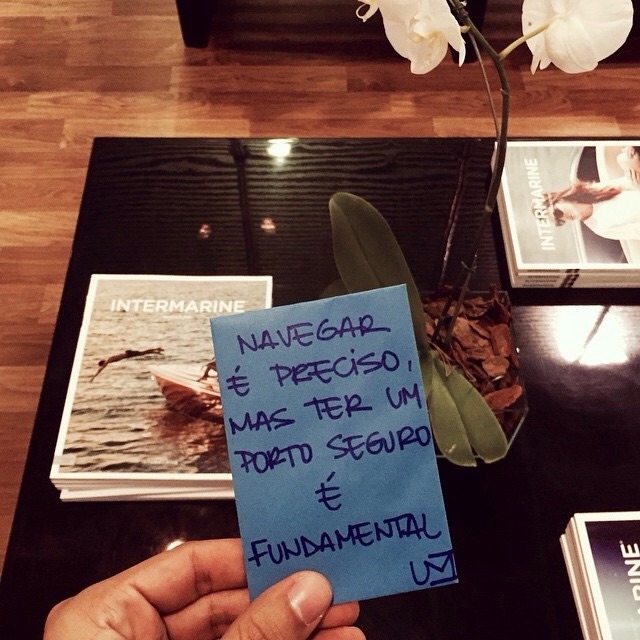 INTERMARINE
INTERMARINE
NAVEGAR
É PRECISO,
MAS TER UM
PORTO SEGURO
É
FUNDAMENTAL